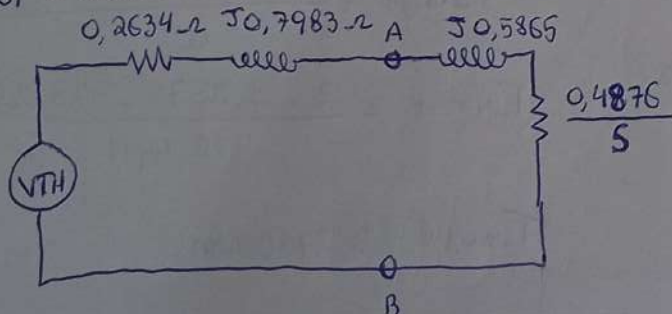 0,2634Ω J0,7983Ω A J0,5865
0,4876
S
VTH
B